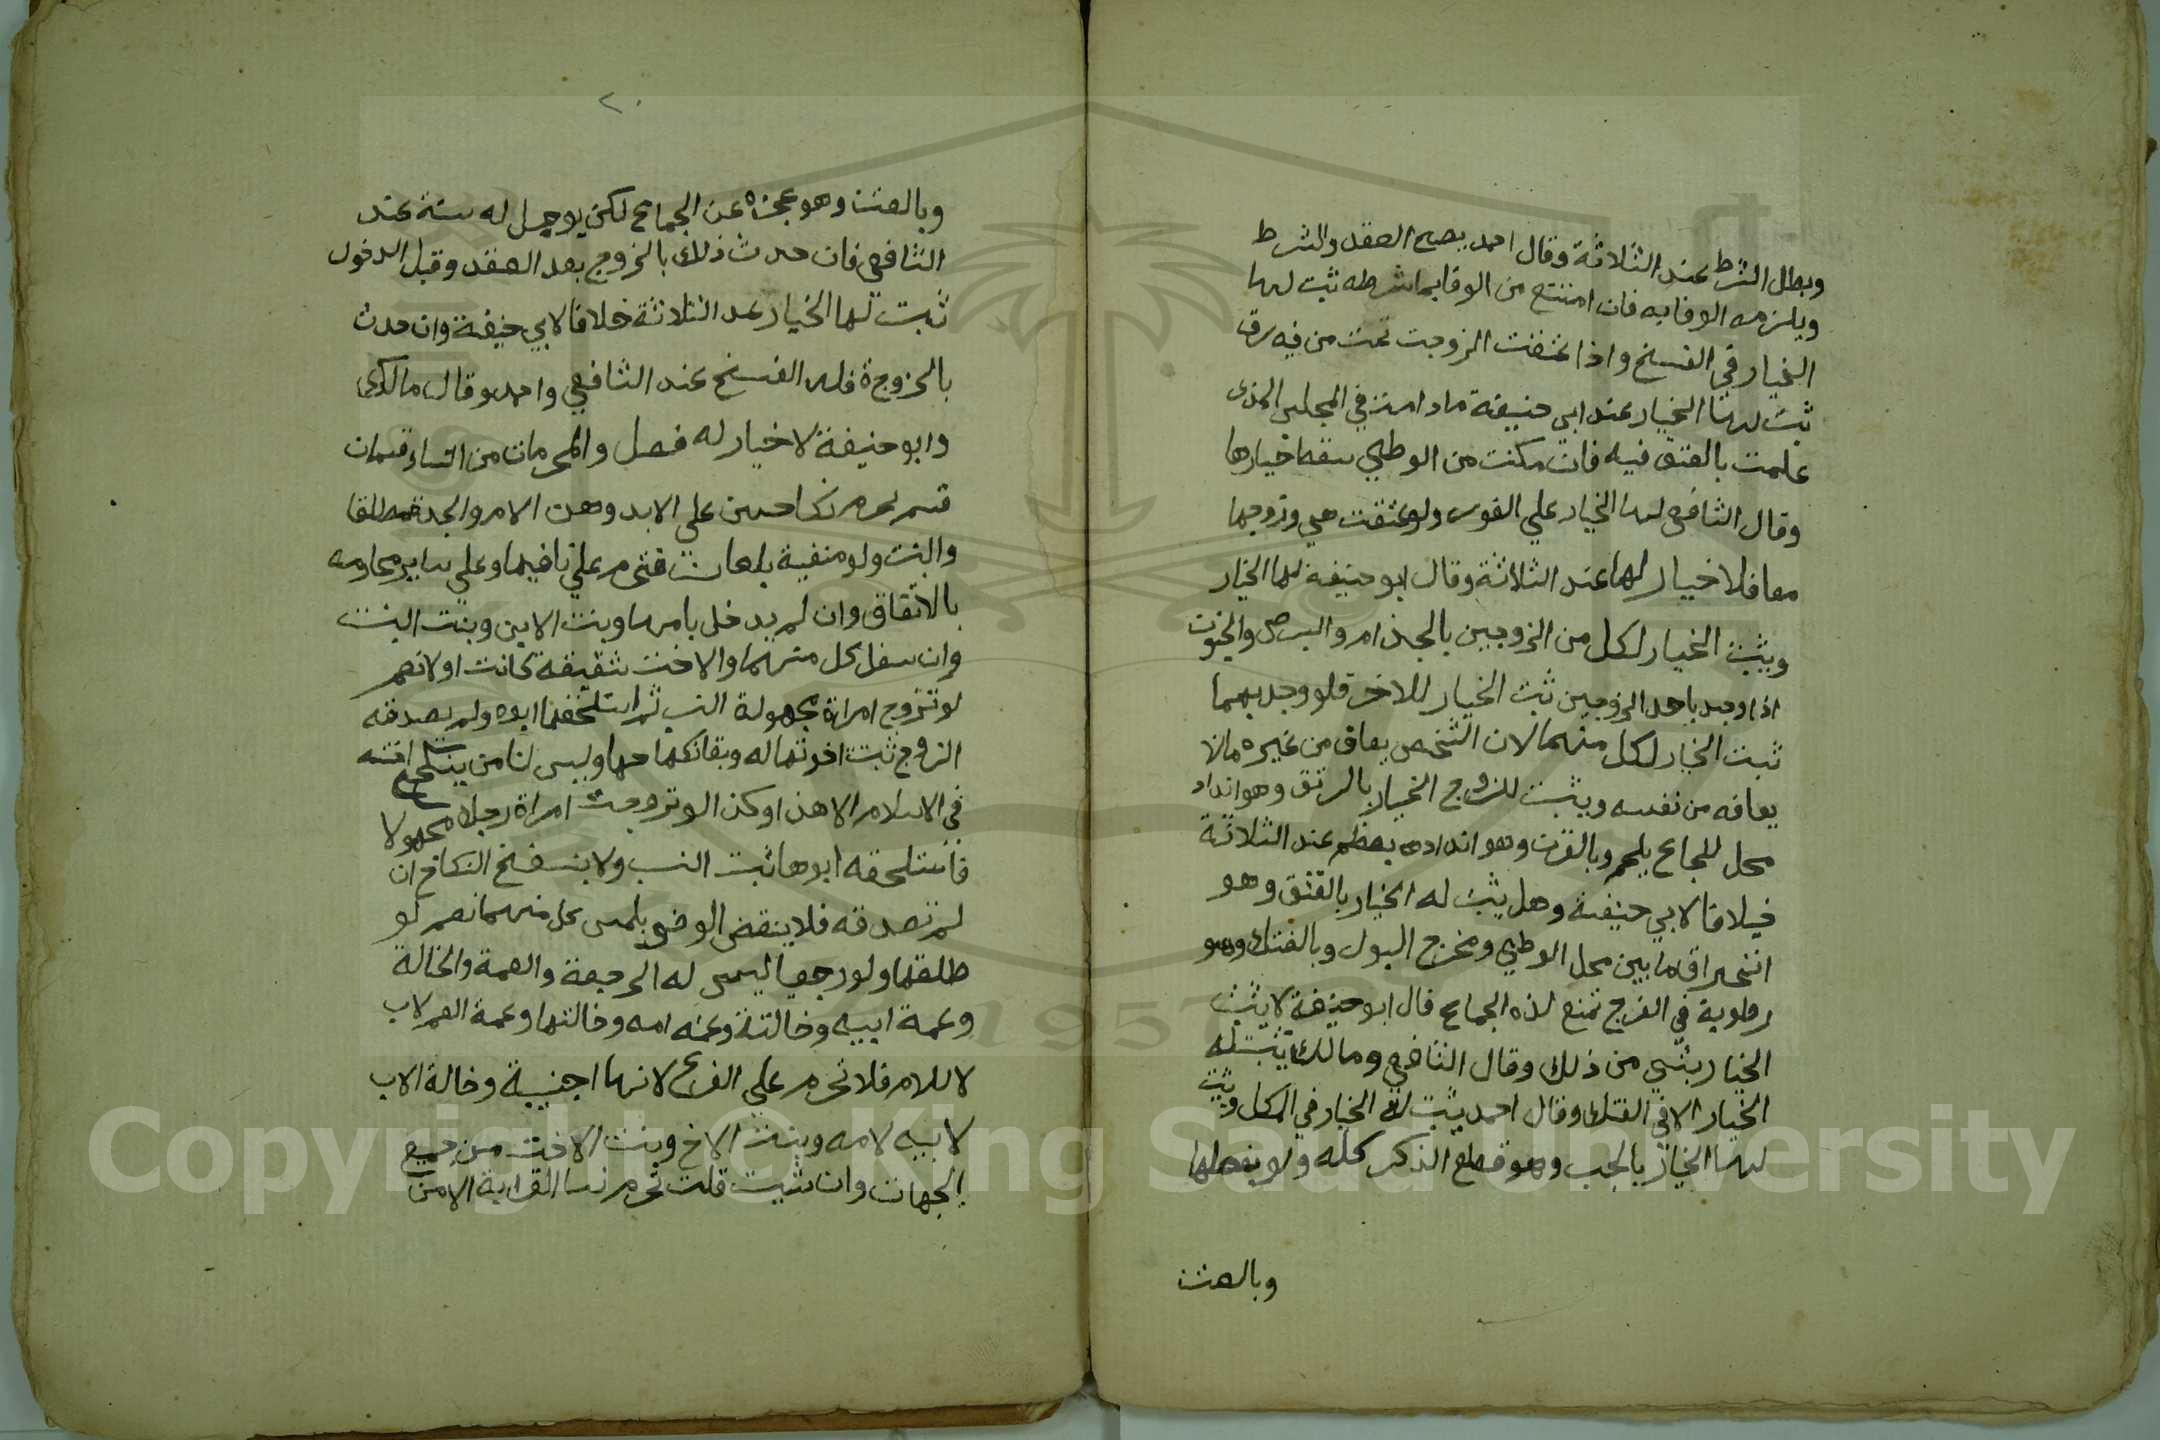 ويطل الشرط عند الثلاثة وقال احمد يصح العقد والشرط
ويلزمه الوفا به فان امتنع من الوفا بما شرطه ثبت لها
الخيار في الفسخ واذا عتقت الزوجت تحت من فيه رق
ثبت لها الخيار عند ابي حنيفة مادامت في المجلس الذي
علمت بالعتق فيه فان مكنت من الوطي سقط خيارها
وقال الشافعي لها الخيار علي الفور ولو عتقت هي وزوجها
معا فلا خيار لها عند الثلاثة وقال ابو حنيفة لها الخيار
ويثبت الخيار لكل من الزوجين بالجذام والبرص والجنون
اذا وجد باحد الزوجين ثبت الخيار للاخر فلو وجد بهما
ثبت الخيار لكل منهما لان الشخص يعاف من غيره مالا
يعافه من نفسه ويثبت للزوج الخيار بالرتق وهو انداد
محل الجماع بلحم وبالقرن وهو انداده بعظم عند الثلاثة
خلافا لابي حنيفة وهل يثبت له الخيار بالفتق وهو
انخراق ما بين محل الوطي ومخرج البول وبالفتك وهو
رطوبة في الفرج تمنع لذه الجماع قال ابو حنيفة لا يثبت
الخيار بشي من ذلك وقال الشافعي ومالك يثبت له
الخيار الا في الفتك وقال احمد يثبت له الخيار في الكل ويثبت
لها الخيار بالجب وهو قطع الذكر كله ولو بفعلها
وبالعنت
٢٠
وبالعنت وهو عجزه عن الجماع لكن يوجل له سنة عند
الشافعي فان حدث ذلك بالزوج بعد العقد وقبل الدخول
ثبت لها الخيار عند الثلاثة خلافا لابي حنيفة وان حدث
بالزوجة فله الفسخ عند الشافعي واحمد وقال مالك
وابو حنيفة لا خيار له فصل والمحرمات من النساء قسمان
قسم يحرم نكاحهن علي الابد وهن الام والجدة مطلقا
والبنت ولو منفية بلعان فتحرم علي نافيها وعلي ساير محارمه
بالاتفاق وان لم يدخل بامها وبنت الابن وبنت البنت
وان سفل كل منهما والاخت شقيقة كانت او لا نعم
لو تزوج امراة مجهولة النسب ثم استلحقها ابوه ولم يصدقه
الزوج ثبت اخوتها له وبقا نكاحها وليس لنا من ينكح اخته
في الاسلام الا هذا وكذا لو تزوجت امراة رجلا مجهولا
فاستلحقه ابوها ثبت النسب ولا ينفسخ النكاح ان
لم تصدقه فلا ينقض الوضو بلمس كل منهما نعم لو
طلقها ولو رجعيا ليس له الرجعة والعمة والخالة
وعمة ابيه وخالتة وعمه امه وخالتها وعمة العم لاب
لا للام فلا تحرم علي الفرع لانها اجنبية وخالة الاب
لابيه لامه وبنت الاخ وبنت الاخت من جميع
الجهات وان شيت قلت تحرم نسا القرابة الا من
1957
Copyright © King Saud University